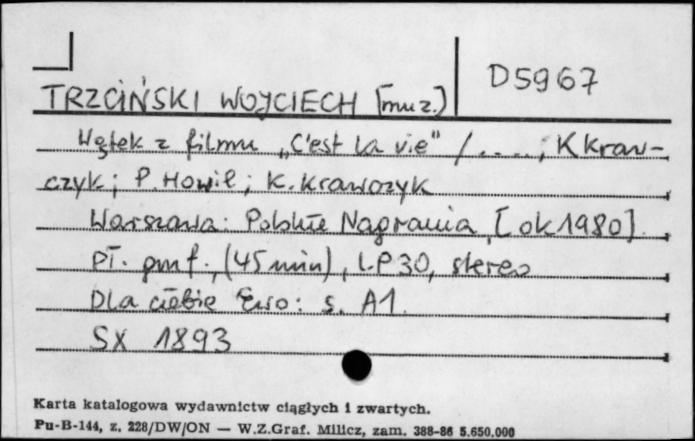 D5967
TRZCIŃSKI WOJCIECH [muz.)
Wątek z filmu „C'est la vie" / ...., K kraw-
czyk; P. Howil; K. Krawczyk
Warszawa: Polskie Nagrania, [ok 1980].
Pł. gmf., (45 min), LP30, stereo
Dla ciebie Ewo: s. A1.
SX 1893
Karta katalogowa wydawnictw ciągłych i zwartych.
Pu-B-144, z. 228/DW/ON — W.Z.Graf. Milicz, zam. 388-86 5.650.000